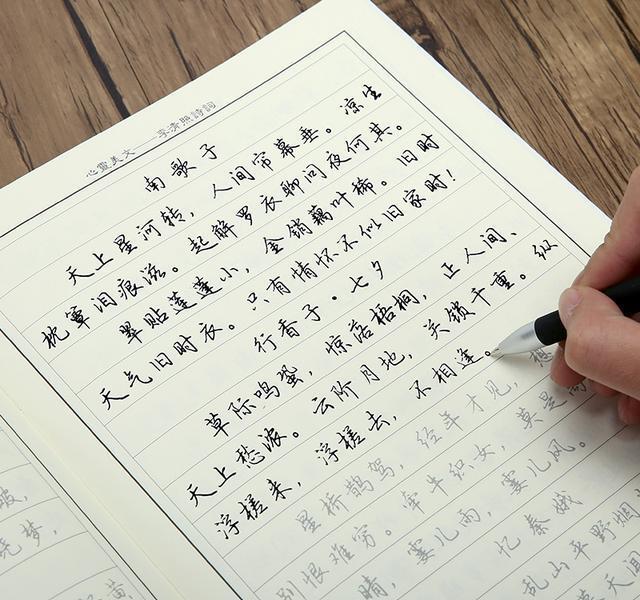 心靈美文——李清照詩詞
南歌子
天上星河转，人间帘幕垂。凉生
枕簟泪痕滋。起解罗衣聊问夜何其。
翠贴莲蓬小，金销藕叶稀。旧时
天气旧时衣。只有情怀不似旧家时！
行香子·七夕
草际鸣蛩，惊落梧桐，正人间、
天上愁浓。云阶月地，关锁千重。纵
浮槎来，浮槎去，不相逢。
星桥鹊驾，经年才见，想
别恨难穷。牵牛织女，莫是离
晴，霎儿雨，霎儿风。
忆秦娥
乱山平野烟
梦，